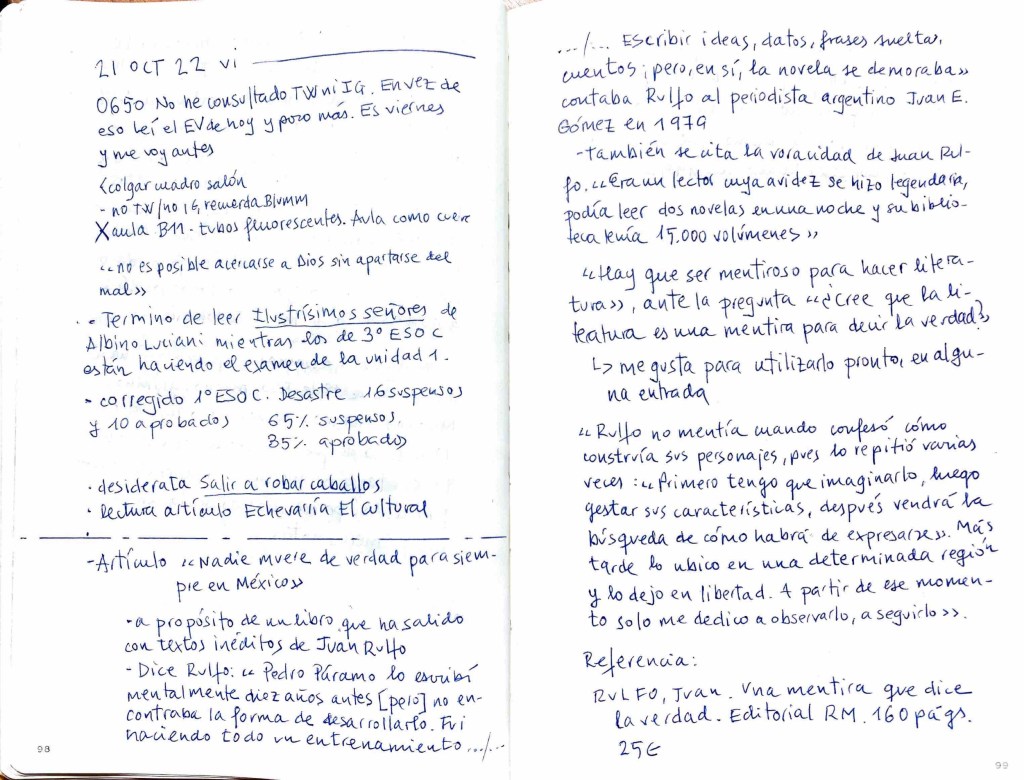 21 OCT 22 vi
0650 No he consultado TW ni IG. En vez de
eso leí el EV de hoy y poco más. Es viernes
y me voy antes
<colgar cuadro salón
- no TW/no IG, recuerda Blumm
X aula B11 - tubos fluorescentes. Aula como
«no es posible acercarse a Dios sin apartarse del
mal»
- Termino de leer Ilustrísimos señores de
Albino Luciani mientras los de 3º ESO C
están haciendo el examen de la unidad 1.
- corregido 1º ESO C. Desastre 16 suspensos
y 10 aprobados 65% suspensos.
35% aprobados
· desiderata Salir a robar caballos
· lectura artículo Echevarría El Cultural
- Artículo «Nadie muere de verdad para siem-
pre en México»
- a propósito de un libro que ha salido
con textos inéditos de Juan Rulfo
- Dice Rulfo: «Pedro Páramo lo escribí
mentalmente diez años antes [pero] no en-
contraba la forma de desarrollarlo. Fui
haciendo todo un entrenamiento .../...
98
.../... Escribir ideas, datos, frases sueltas,
cuentos; pero, en sí, la novela se demoraba»
contaba Rulfo al periodista argentino Juan E.
Gómez en 1979
- También se cita la voracidad de Juan Rul-
fo. «Era un lector cuya avidez se hizo legendaria,
podía leer dos novelas en una noche y su biblio-
teca tenía 15.000 volúmenes»
«Hay que ser mentiroso para hacer litera-
tura», ante la pregunta «¿Cree que la li-
teratura es una mentira para decir la verdad?»
↳ me gusta para utilizarlo pronto, en algu-
na entrada
«Rulfo no mentía cuando confesó cómo
construía sus personajes, pues lo repitió varias
veces: «Primero tengo que imaginarlo, luego
gestar sus características, después vendrá la
búsqueda de cómo habrá de expresarse». Más
tarde lo ubico en una determinada región
y lo dejo en libertad. A partir de ese momen-
to solo me dedico a observarlo, a seguirlo».
Referencia:
RULFO, Juan. Una mentira que dice
la verdad. Editorial RM. 160 págs.
25€
99